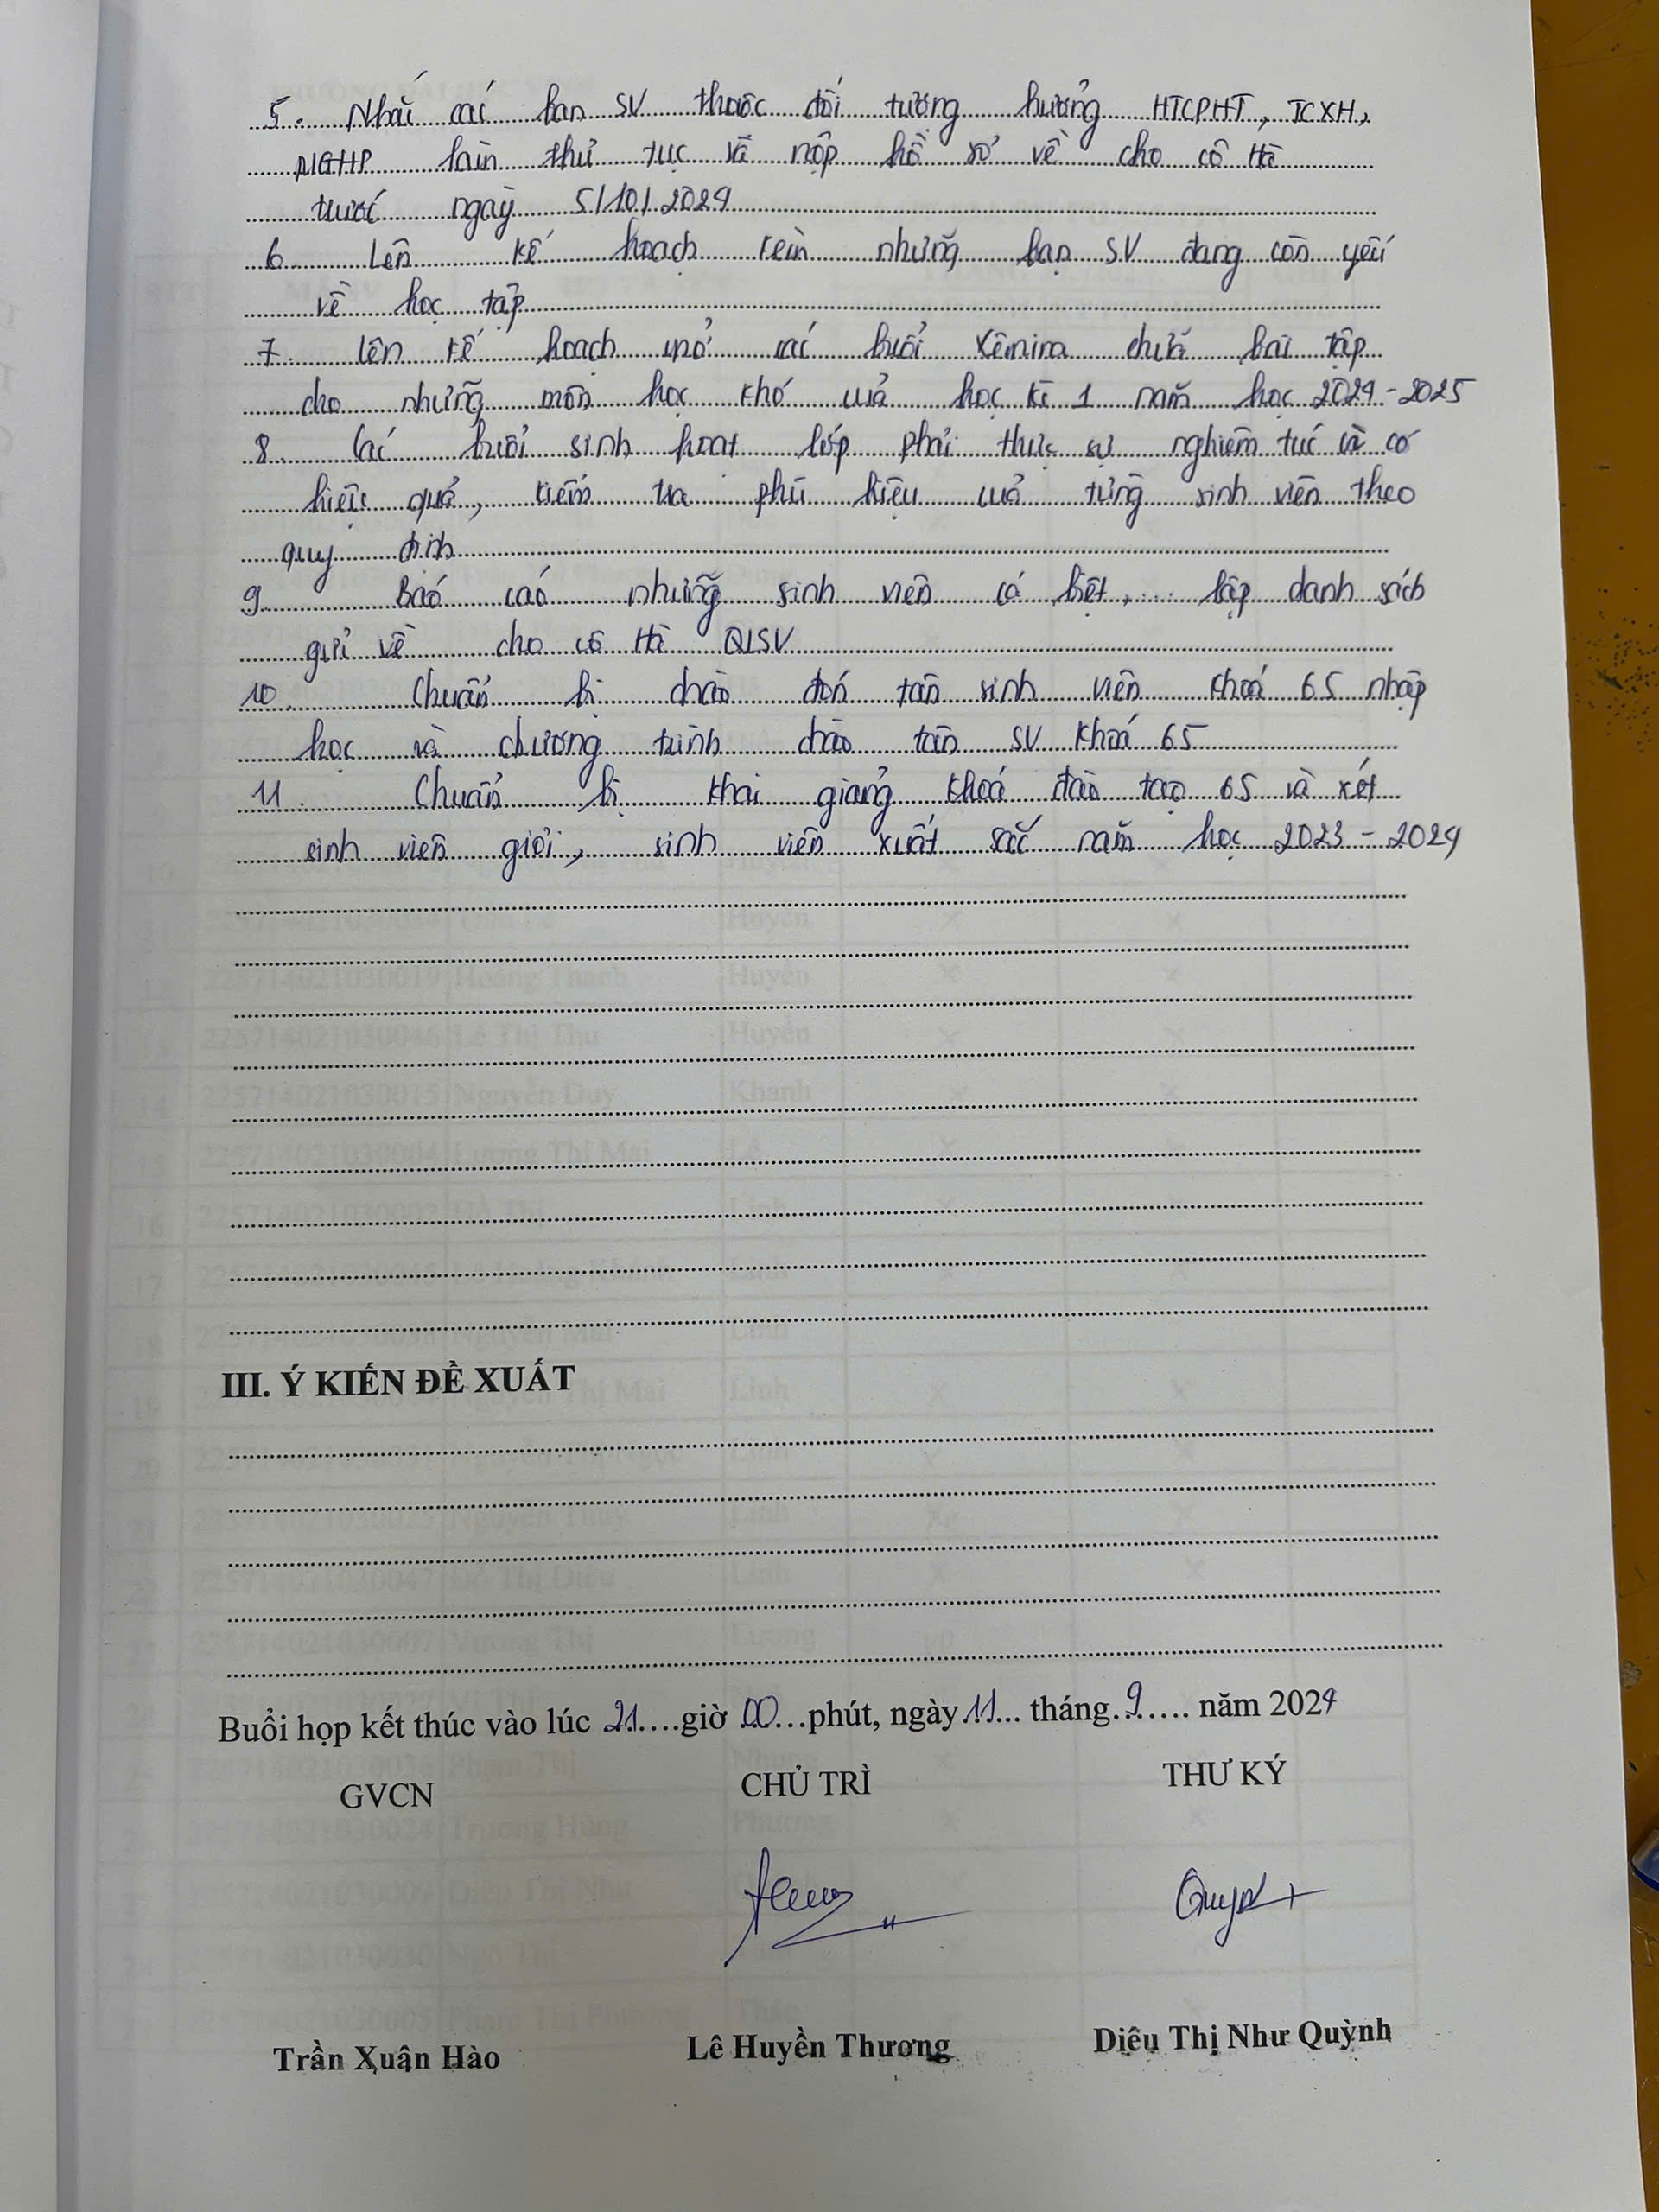 5. Nhắc các bạn SV thuộc đối tượng hưởng HTCPHT, TCXH,
MGHP làm thủ tục và nộp hồ sơ về cho cô Hà
trước ngày 5/10/2024
6. Lên kế hoạch kèm những bạn SV đang còn yếu
về học tập
7. Lên kế hoạch mở các buổi Xêmina chữa bài tập
cho những môn học khó của học kì 1 năm học 2024-2025
8. Các buổi sinh hoạt lớp phải thực sự nghiêm túc và có
hiệu quả, kiểm tra phù hiệu của từng sinh viên theo
quy định
9. Báo cáo những sinh viên cá biệt, ... lập danh sách
gửi về cho cô Hà QLSV
10. Chuẩn bị chào đón tân sinh viên khoá 65 nhập
học và chương trình chào tân SV khoá 65
11. Chuẩn bị khai giảng khoá đào tạo 65 và xét
sinh viên giỏi, sinh viên xuất sắc năm học 2023-2024
III. Ý KIẾN ĐỀ XUẤT
Buổi họp kết thúc vào lúc 21 giờ 00 phút, ngày 11 tháng 9 năm 2024
GVCN CHỦ TRÌ THƯ KÝ
Quỳnh
Trần Xuân Hào Lê Huyền Thương Diệu Thị Như Quỳnh